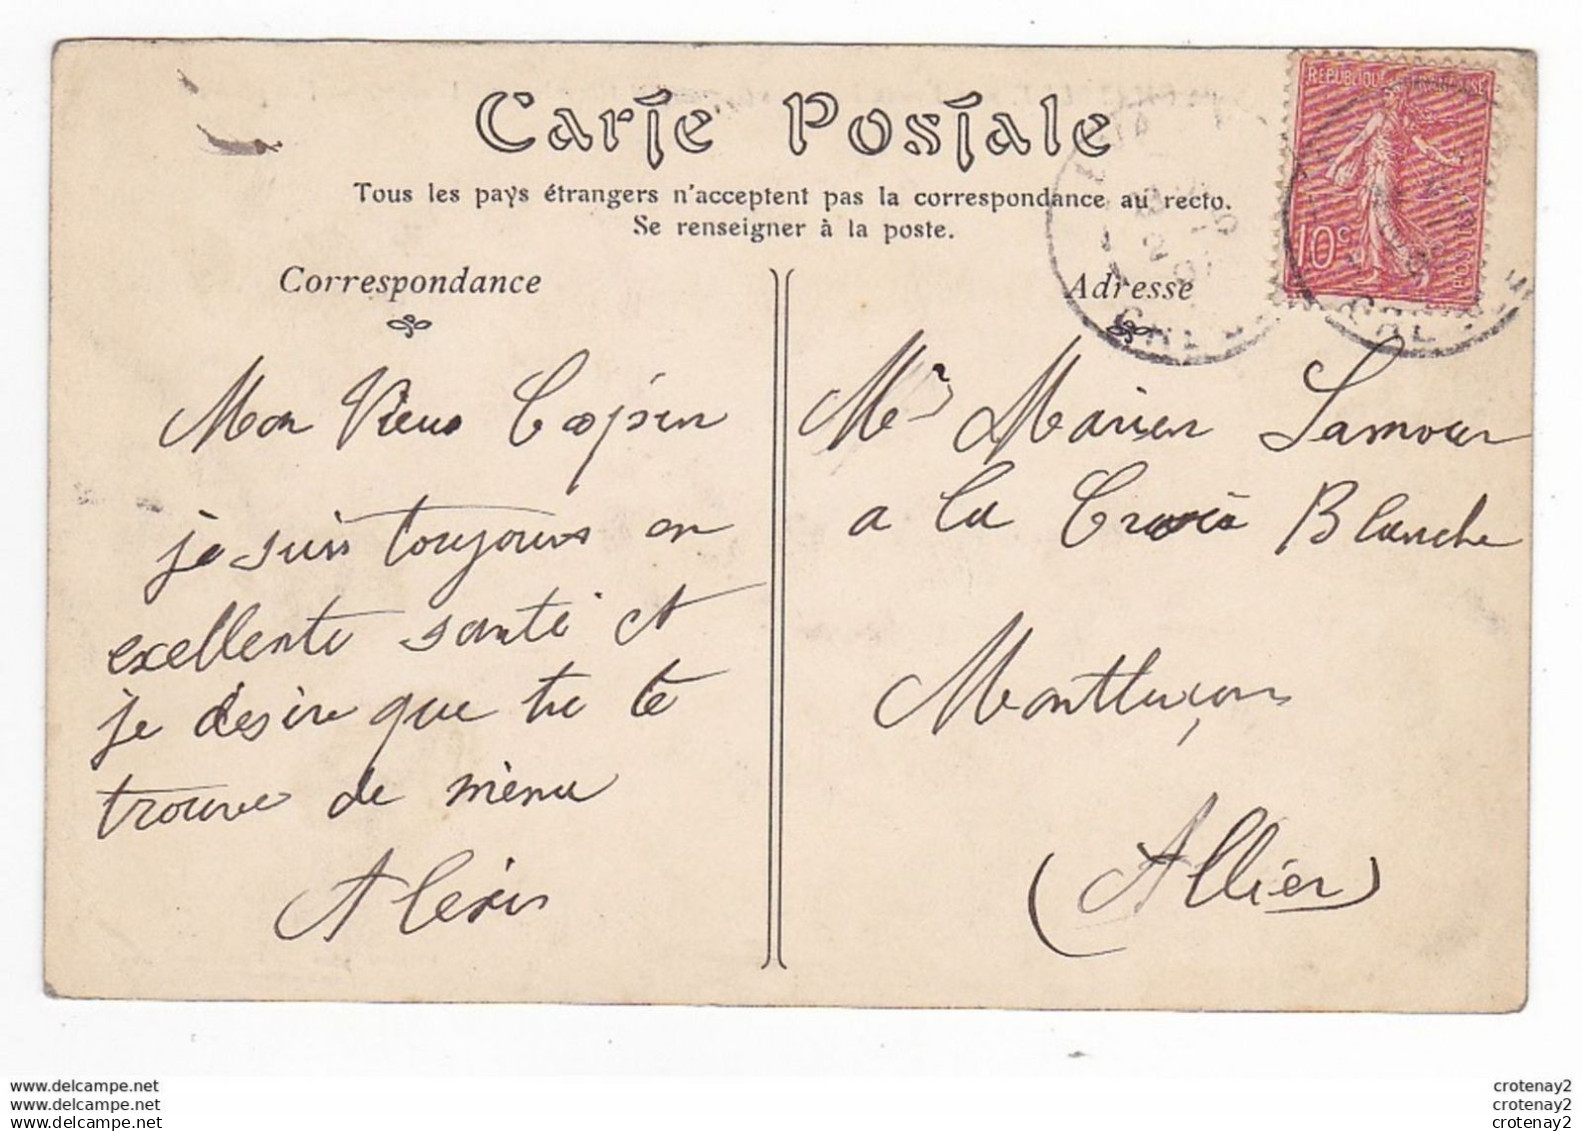 Carte Postale
Tous les pays étrangers n'acceptent pas la correspondance au recto.
Se renseigner à la poste.
Correspondance
Adresse
REPUBLIQUE FRANCAISE
10c
POSTES
Mon Vieux Copin
je suis toujours en
exellente santé et
je désire que tu te
trouve de même
Alexis
Mr Marien Lamour
a la Croix Blanche
Montluçon
(Allier)
www.delcampe.net
www.delcampe.net
www.delcampe.net
crotenay2
crotenay2
crotenay2